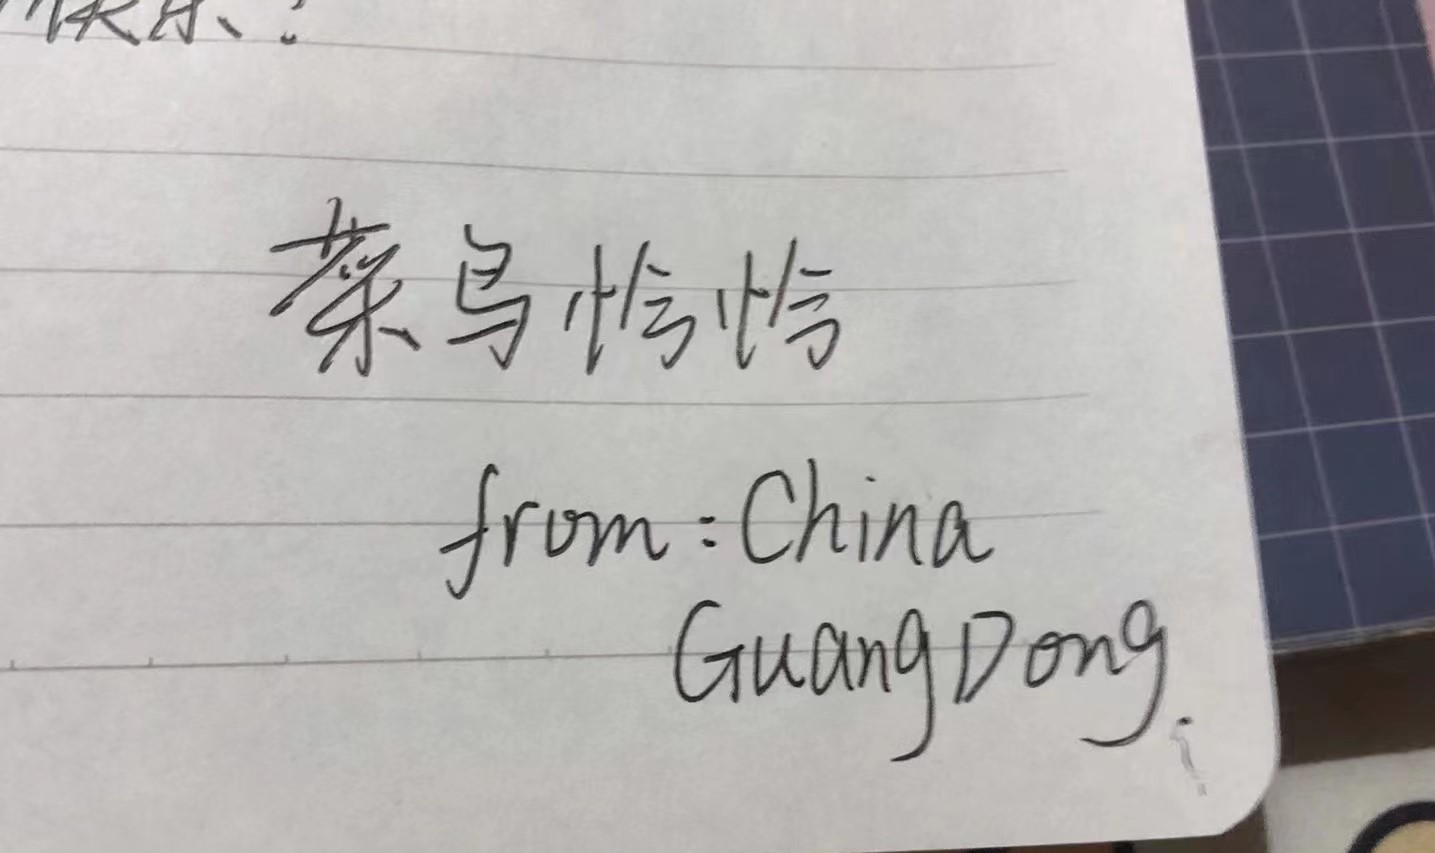 快乐！
菜鸟恰恰
from：China
GuangDong.